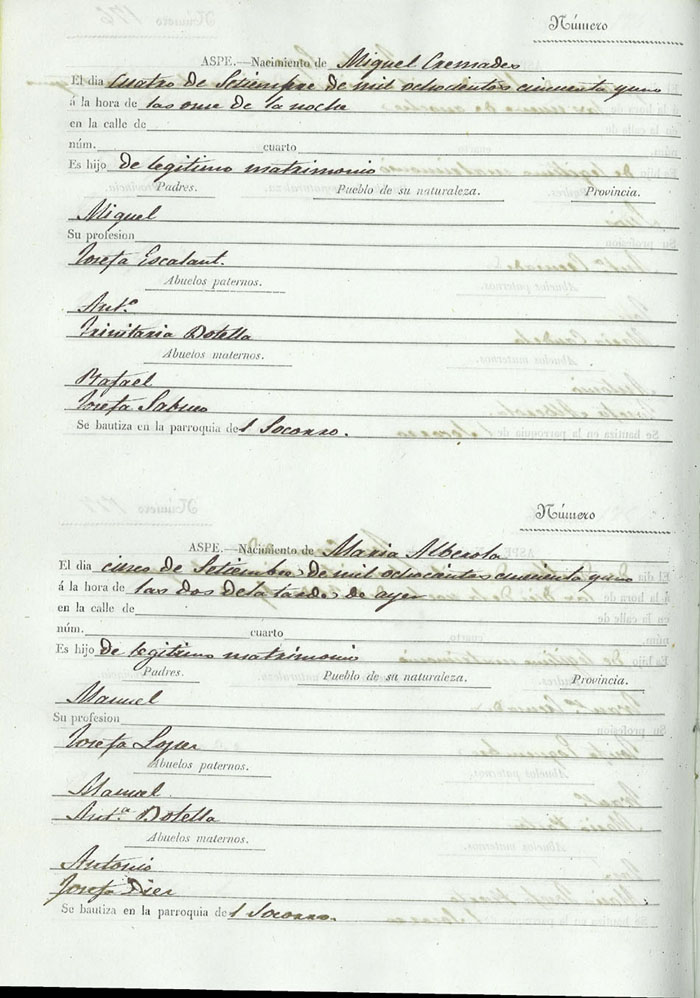 Número
ASPE.—Nacimiento de Miguel Cremades
El dia cuatro de Setiembre de mil ochocientos cincuenta y uno
á la hora de las once de la noche
en la calle de
núm. cuarto
Es hijo de legitimo matrimonio
Padres. Pueblo de su naturaleza. Provincia.
Miguel
Su profesion
Josefa Escalant.
Abuelos paternos.
Ant.º
Trinitaria Botella
Abuelos maternos.
Rafael
Josefa
Se bautiza en la parroquia del Socorro.
Número
ASPE.—Nacimiento de Maria Alberola
El dia cinco de Setiembre de mil ochocientos cincuenta y uno
á la hora de las dos de la tarde de ayer
en la calle de
núm. cuarto
Es hijo de legitimo matrimonio
Padres. Pueblo de su naturaleza. Provincia.
Manuel
Su profesion
Josefa Lopez
Abuelos paternos.
Manuel
Ant.ª Botella
Abuelos maternos.
Antonio
Josefa Diez
Se bautiza en la parroquia del Socorro.